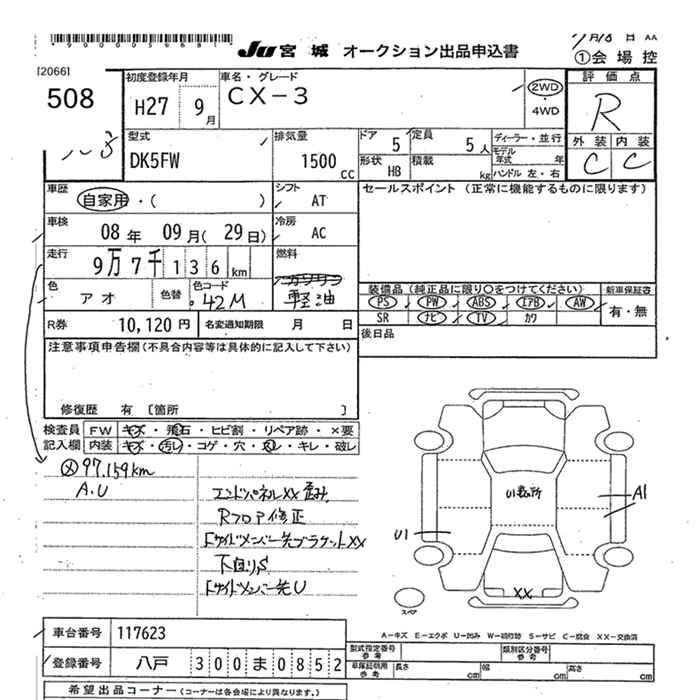 JU 宮城 オークション出品申込書
①会場控
[2066]
508
初度登録年月 H27 9月
車名・グレード CX-3
2WD
4WD
評価点
R
外装 内装
C C
型式 DK5FW
排気量 1500 CC
ドア 5
定員 5人
形状 HB
積載 kg
ディーラー・並行
モデル年式 年
ハンドル 左・右
車歴 自家用・( )
シフト AT
セールスポイント (正常に機能するものに限ります)
車検 08年 09月(29日)
冷房 AC
走行 9万7千136km
燃料 ガソリン 軽油
色 アオ 色替
色コード 42M
装備品(純正品に限り○をつけてください)
新車保証書
PS PW ABS エアB AW
SR ナビ TV カワ
有・無
R券 10,120円
名変通知期限 月 日
後日品
注意事項申告欄(不具合内容等は具体的に記入して下さい)
修復歴 有 [箇所 ]
検査員記入欄
FW キズ・飛石・ヒビ割・リペア跡・×要
内装 キズ・汚レ・コゲ・穴・スレ・キレ・破レ
97,159km
A.U
エンドパネルXX歪み
Rフロア修正
下廻りS
U1数ヶ所
A1
U1
XX
スペア
A-キズ E-エクボ U-凹み W-補修跡 S-サビ C-腐食 XX-交換済
車台番号 117623
登録番号 八戸 300ま0852
型式指定番号 参考
類別区分番号 参考
車庫証明用 参考 長さ cm 幅 cm 高さ cm
希望出品コーナー(コーナーは各会場により異なります。)